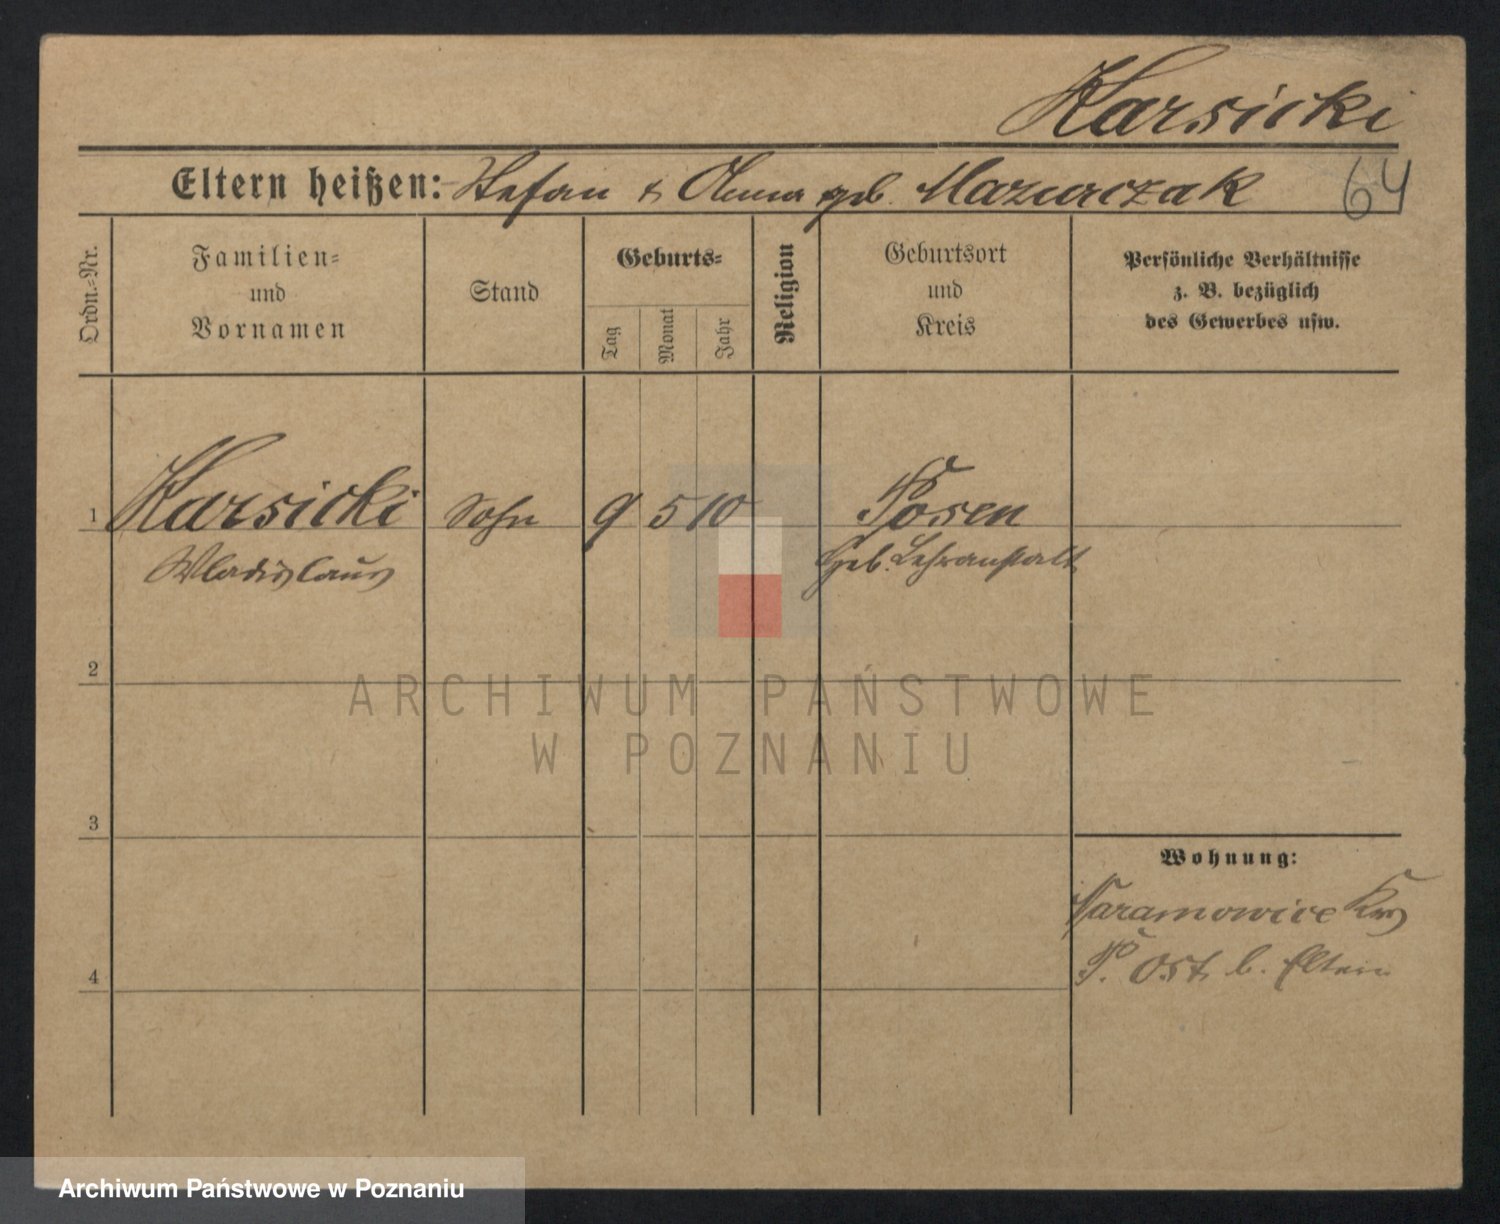 Karsicki
Eltern heißen: Stefan & Anna geb. Mazurczak
64
Ordn.-Nr.
Familien-
und
Vornamen
Stand
Geburts-
Tag
Monat
Jahr
Religion
Geburtsort
und
Kreis
Persönliche Verhältnisse
z. B. bezüglich
des Gewerbes usw.
1 Karsicki Sohn 9 5 10 Posen
Wladislaus Heb. Lehranstalt
2
3
4
Wohnung:
Naramowice Krs
P. Ost b. Eltern
ARCHIWUM PAŃSTWOWE
W POZNANIU
Archiwum Państwowe w Poznaniu